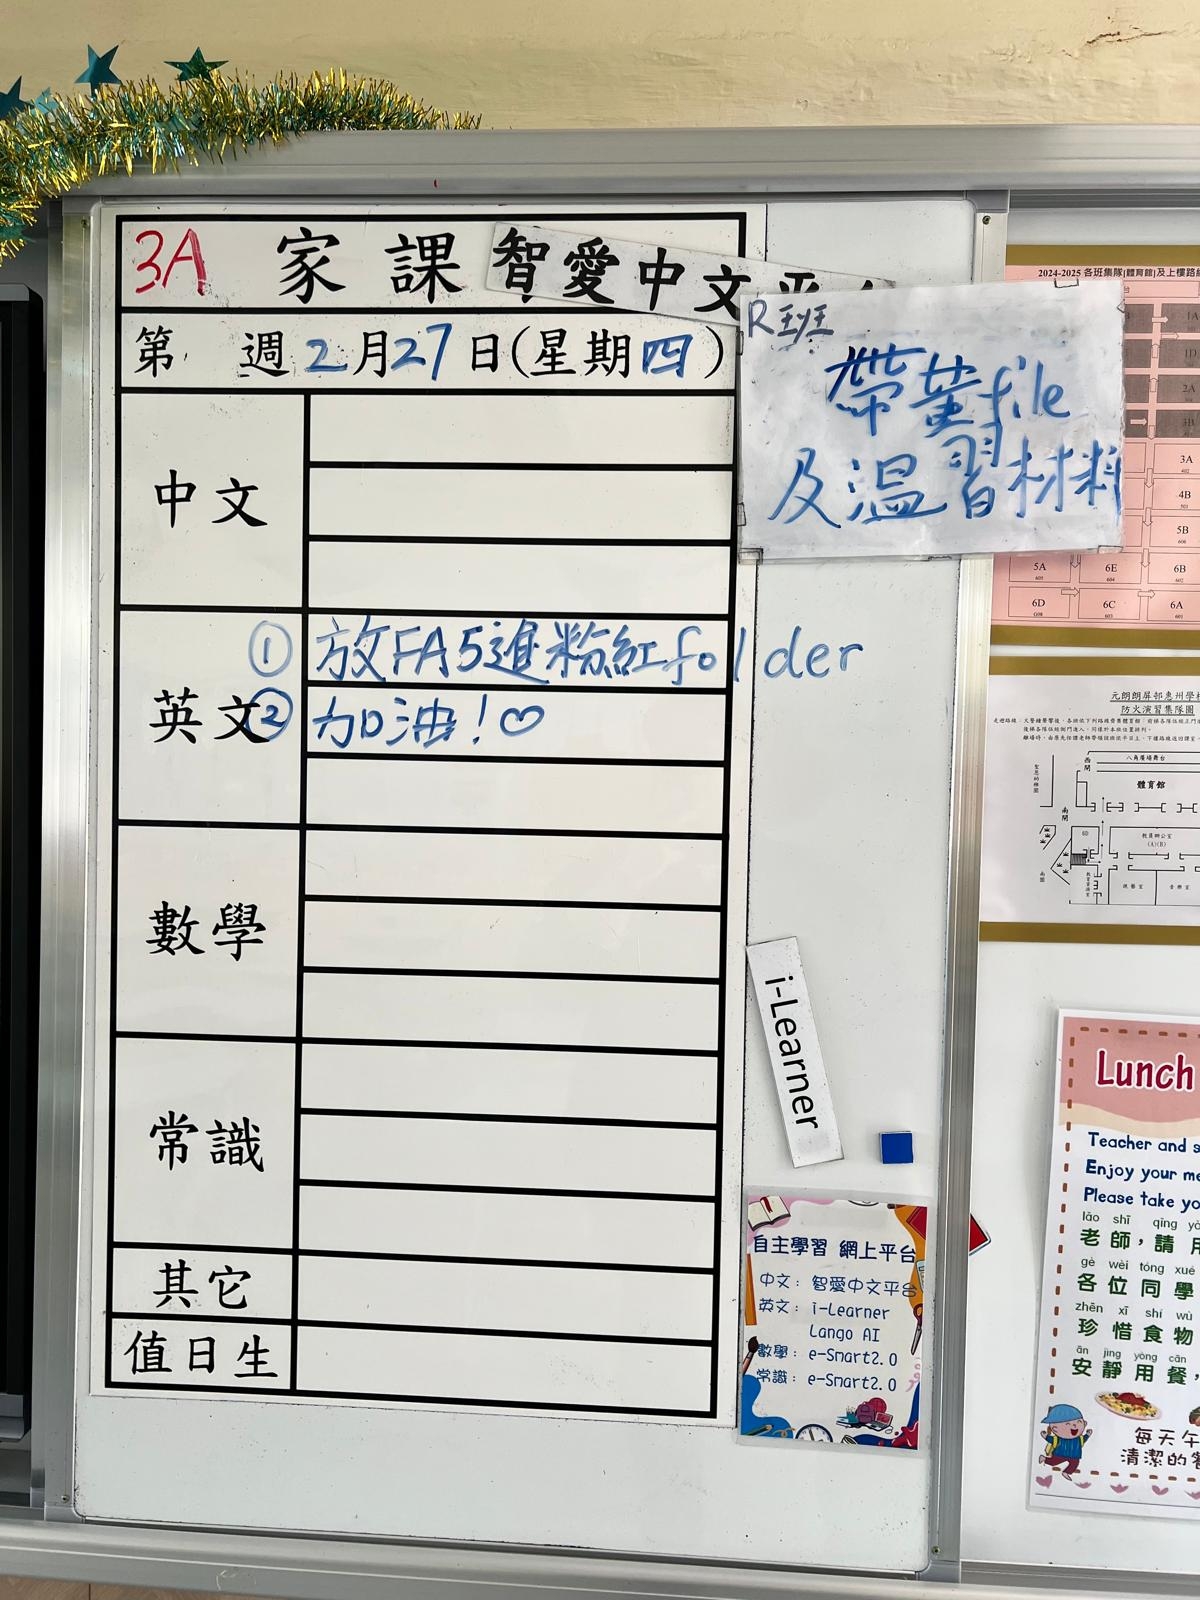 3A 家課
智愛中文平台
第 週2月27日(星期四)
中文
英文
① 放FA5進粉紅folder
② 加油!♡
數學
常識
其它
值日生
R班
帶藍file
及溫習材料
i-Learner
自主學習 網上平台
中文: 智愛中文平台
英文: i-Learner
Lango AI
數學: e-Smart2.0
常識: e-Smart2.0
2024-2025 各班集隊(體育館)及上樓路
1A
1D
2A
3B
3A
4B
5B
5A
6E
6B
6D
6C
6A
元朗朗屏邨惠州學校
防火演習集隊圖
八角廣場舞台
西閘
體育館
南閘
6D
教員辦公室
(A)(B)
音樂室
Lunch
Teacher and s
Enjoy your me
Please take yo
lǎo shī qǐng yò
老師,請用
gè wèi tóng xué
各位同學
zhēn xī shí wù
珍惜食物
ān jìng yòng cān
安靜用餐,
每天午
清潔的餐